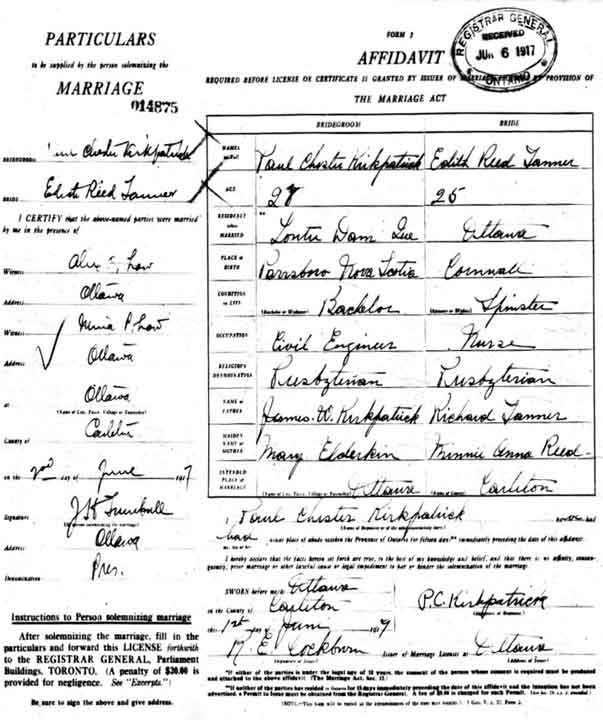 PARTICULARS
to be supplied by the person solemnizing the
MARRIAGE
014875
BRIDEGROOM Paul Chester Kirkpatrick
BRIDE Edith Reed Tanner
I CERTIFY that the above-named parties were married
by me in the presence of
Witness
Address Ottawa
Witness
Address Ottawa
at Ottawa
(Name of City, Town, Village or Township)
County of Carleton
on the 2nd day of June 1917
Signature
(of person solemnizing marriage)
Address Ottawa
Denomination Pres.
Instructions to Person solemnizing marriage
After solemnizing the marriage, fill in the
particulars and forward this LICENSE forthwith
to the REGISTRAR GENERAL, Parliament
Buildings, TORONTO. (A penalty of $20.00 is
provided for negligence. See "Excerpts.")
Be sure to sign the above and give address.
FORM 2
AFFIDAVIT
REGISTRAR GENERAL
RECEIVED
JUN 6 1917
ONTARIO
REQUIRED BEFORE LICENSE OR CERTIFICATE IS GRANTED BY ISSUER OF MARRIAGE BY PROVISION OF
THE MARRIAGE ACT
BRIDEGROOM BRIDE
NAMES Paul Chester Kirkpatrick Edith Reed Tanner
AGE 27 25
RESIDENCE when MARRIED Dam Que Ottawa
PLACE of BIRTH Parrsboro Nova Scotia Cornwall
CONDITION IN LIFE Bachelor Spinster
(Bachelor or Widower) (Spinster or Widow)
OCCUPATION Civil Engineer Nurse
RELIGIOUS DENOMINATION Presbyterian Presbyterian
NAME of FATHER James W. Kirkpatrick Richard Tanner
MAIDEN NAME of MOTHER Mary Elderkin Minnie Anna Reed
INTENDED PLACE of MARRIAGE Ottawa Carleton
I Paul Chester Kirkpatrick
usual place of abode within the Province of Ontario for fifteen days** immediately preceding the date of this affidavit
I hereby declare that the facts herein set forth are true, to the best of my knowledge and belief, and that there is no affinity, consanguinity, prior marriage or other lawful cause or legal impediment to bar or hinder the solemnization of the marriage.
SWORN before me at Ottawa
in the County of Carleton P.C. Kirkpatrick
this 1st day of June 1917
M. E. Cockburn Issuer of Marriage Licenses at Ottawa
*If either of the parties is under the legal age of 18 years, the consent of the person whose consent is required must be produced
and attached to the above affidavit. (The Marriage Act, Sec. 15.)
**If neither of the parties has resided in Ontario for 15 days immediately preceding the date of this affidavit and the intention has not been
advertised, a Permit to Issue must be obtained from the Registrar General.